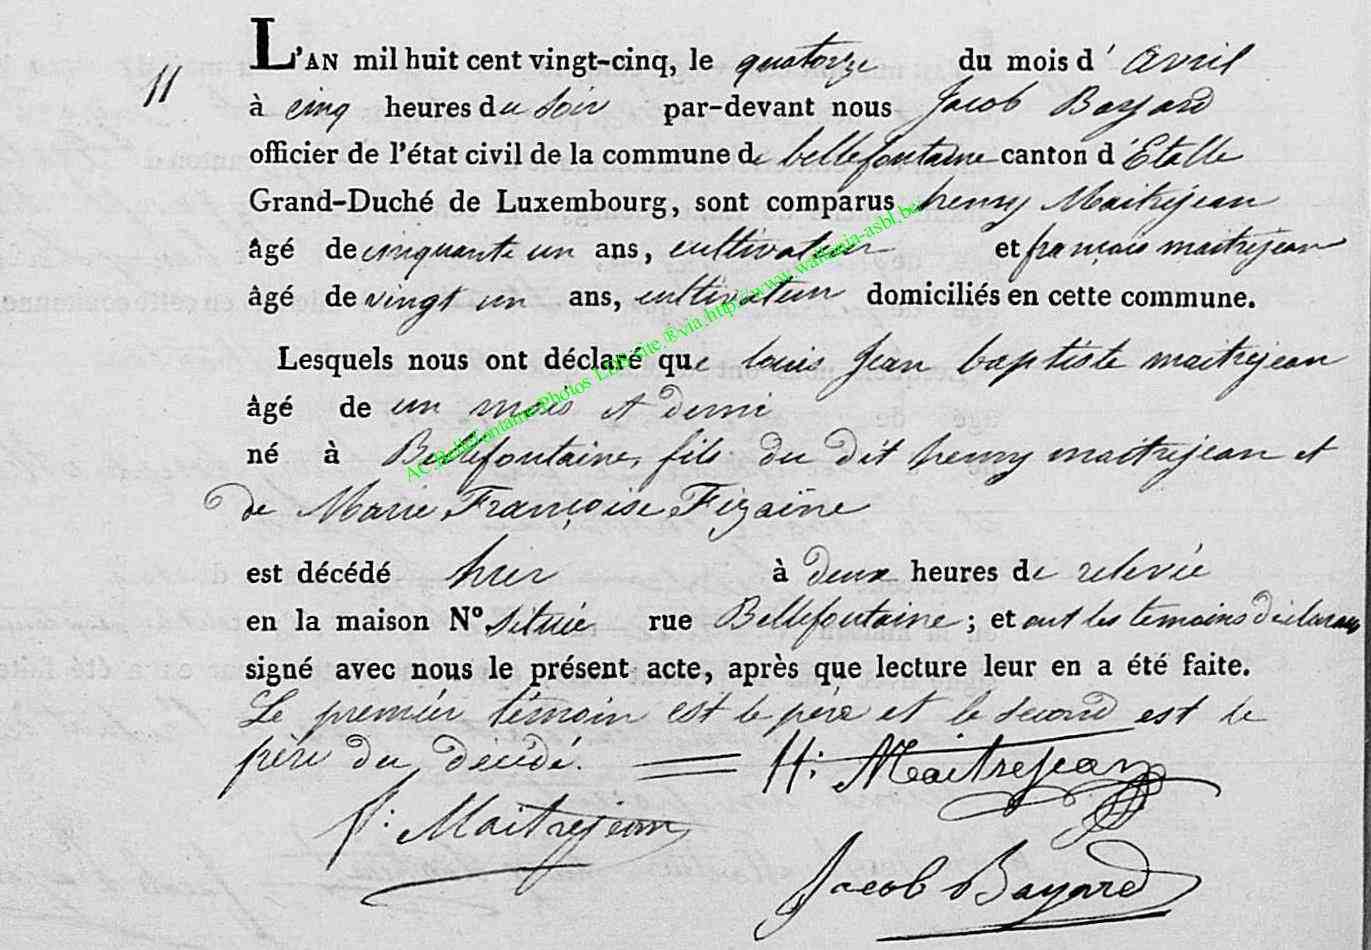 11
L'AN mil huit cent vingt-cinq, le quatorze du mois d'avril
à cinq heures du soir par-devant nous Jacob Bayard
officier de l'état civil de la commune de bellefontaine canton d'Etalle
Grand-Duché de Luxembourg, sont comparus henry Maitrejean
âgé de cinquante un ans, cultivateur et françois maitrejean
âgé de vingt un ans, cultivateur domiciliés en cette commune.
Lesquels nous ont déclaré que louis Jean baptiste maitrejean
âgé de un mois et demi
né à Bellefontaine, fils du dit henry maitrejean et
de Marie Françoise Fizaine
est décédé hier à deux heures de relevée
en la maison N° située rue Bellefontaine ; et ont les temoins déclarans
signé avec nous le présent acte, après que lecture leur en a été faite.
Le premier témoin est le père et le second est le
père du décédé.
H: Maitrejean
f: Maitrejean
Jacob Bayard
AC Bellefontaine Photos LDS site.®via.http://www.wallonia-asbl.be